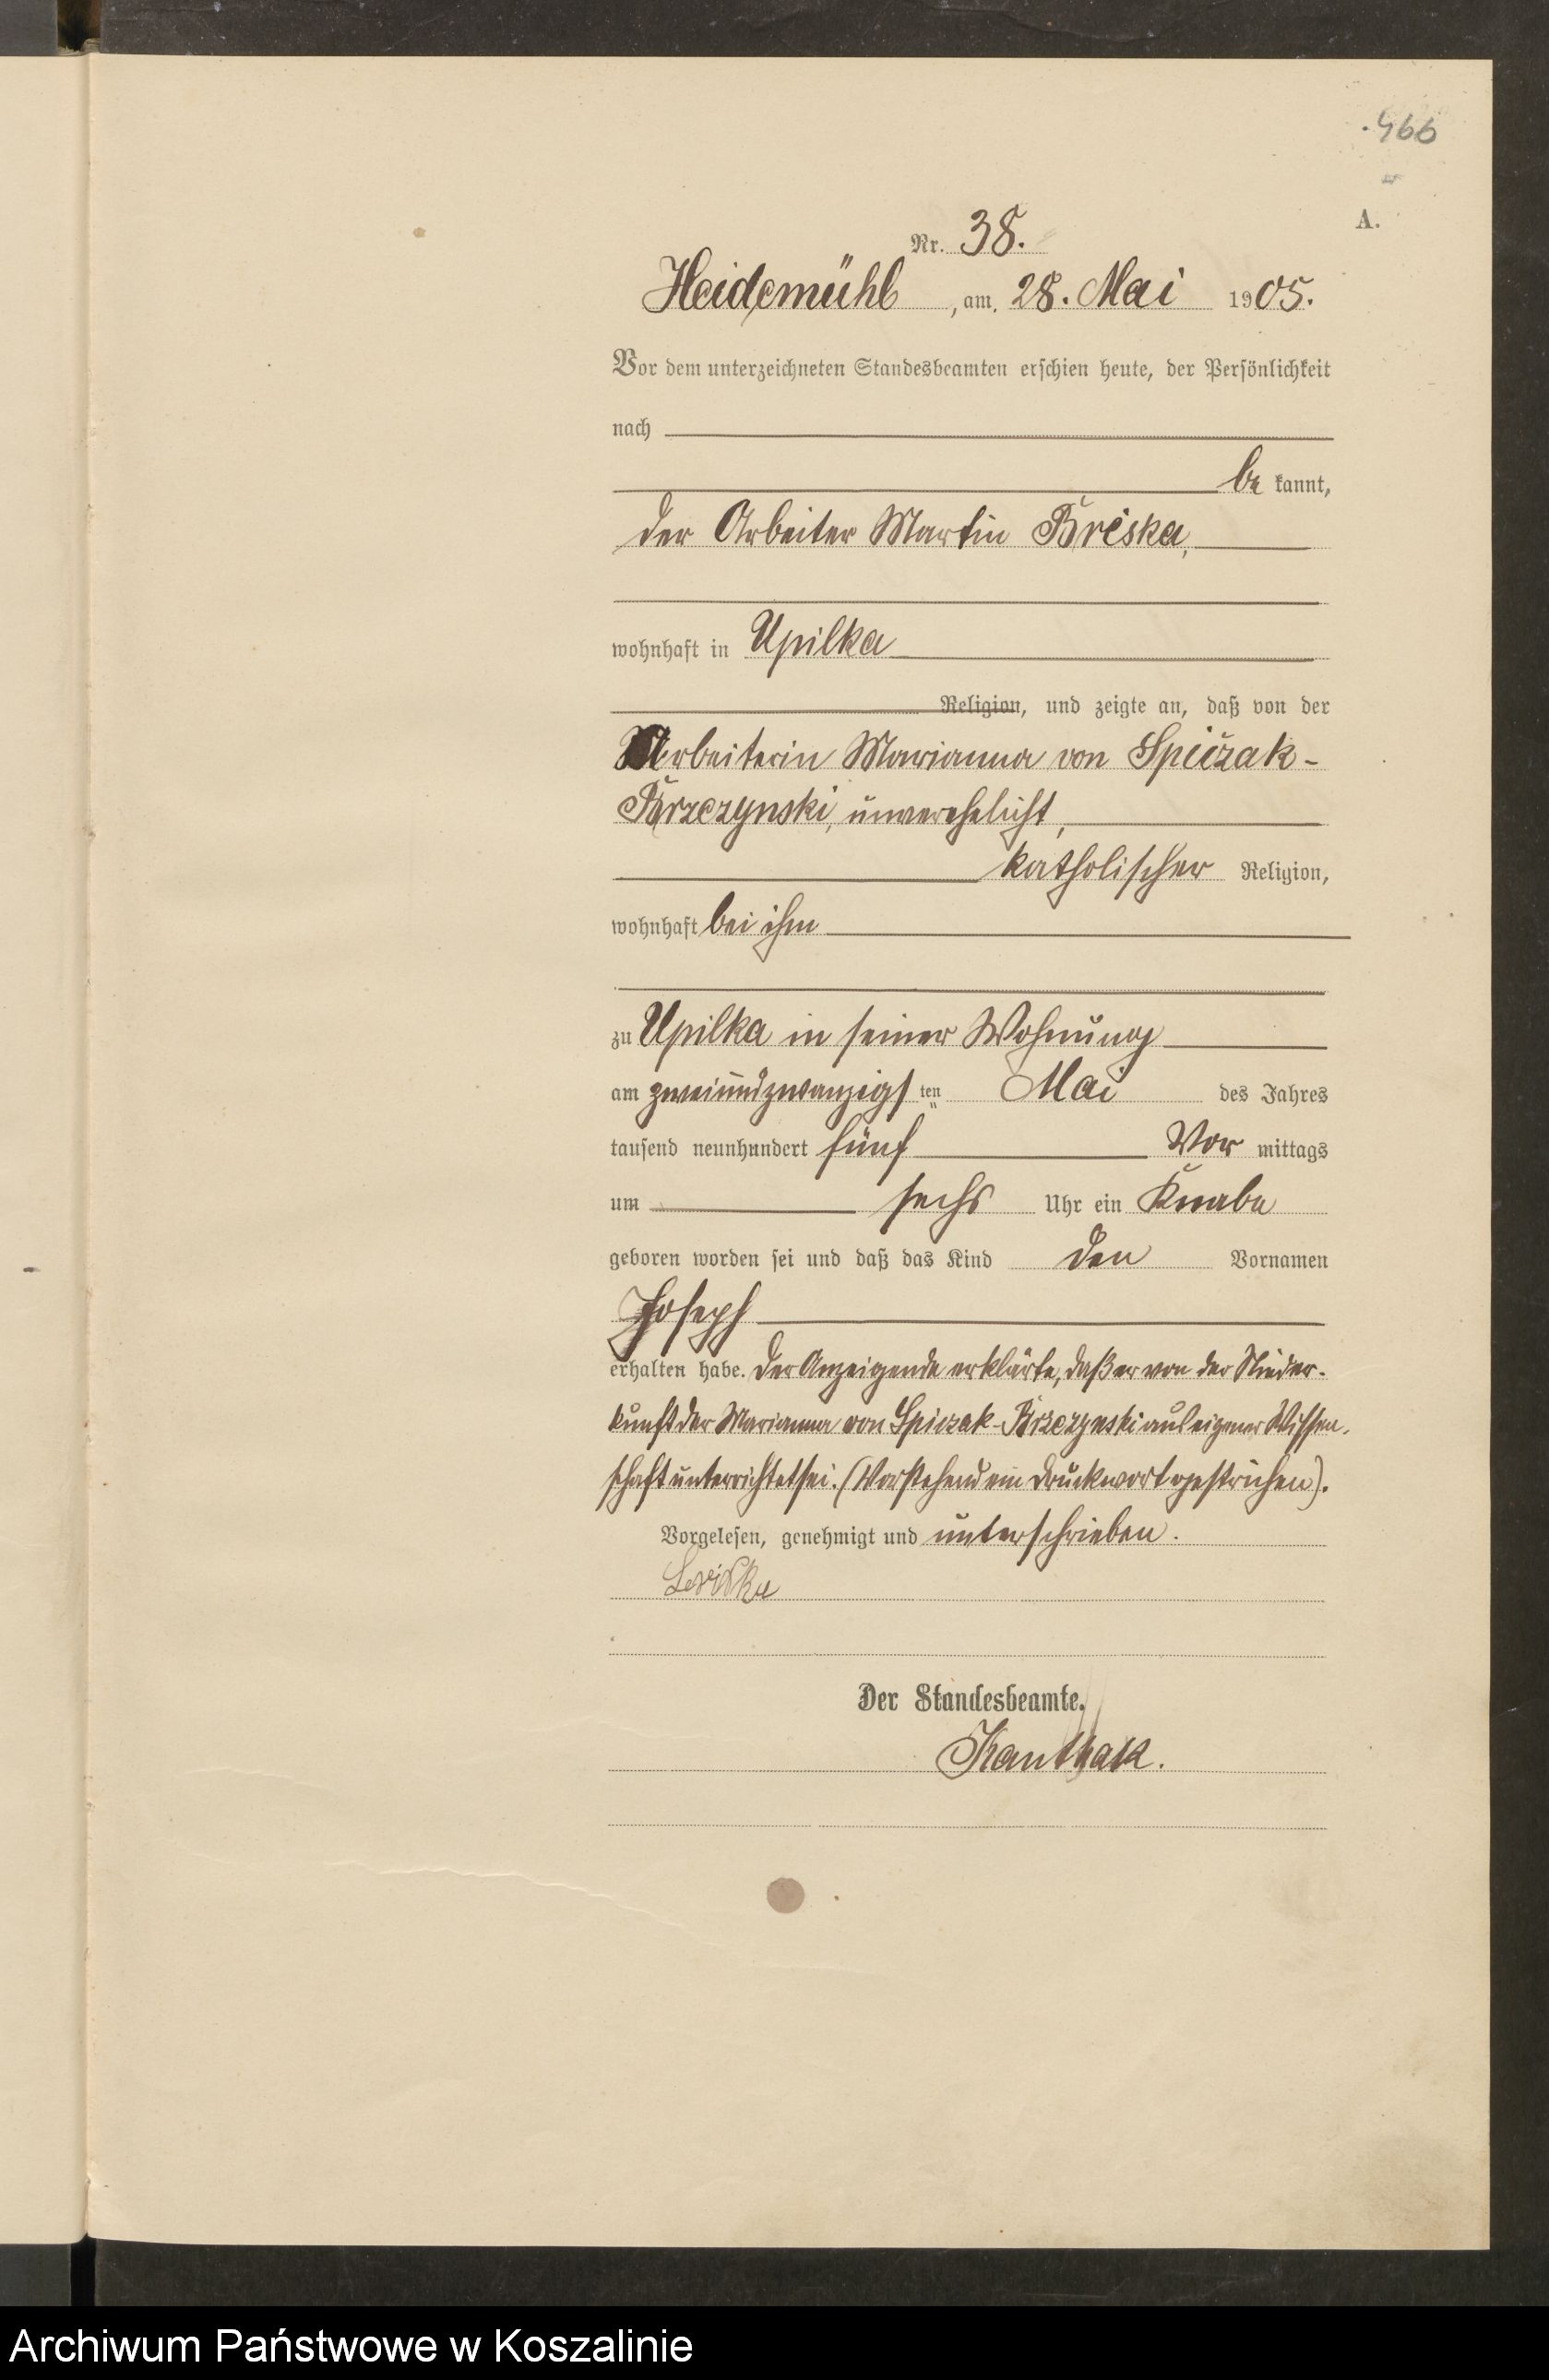 466
A.
Nr. 38.
Heidemühl, am 28. Mai 1905.
Vor dem unterzeichneten Standesbeamten erschien heute, der Persönlichkeit
nach
be kannt,
der Arbeiter Martin Breska,
wohnhaft in Upilka
Religion, und zeigte an, daß von der
Arbeiterin Marianna von Spiczak-
Brzezynski, unverehelicht,
katholischer Religion,
wohnhaft bei ihm
zu Upilka in seiner Wohnung
am zweiundzwanzigsten Mai des Jahres
tausend neunhundert fünf Vor mittags
um sechs Uhr ein Knabe
geboren worden sei und daß das Kind den Vornamen
Joseph
erhalten habe. Der Anzeigende erklärte, daß er von der Nieder-
kunft der Marianna von Spiczak-Brzezynski aus eigener Wissen-
schaft unterrichtet sei. (Vorstehend ein Druckwort gestrichen).
Vorgelesen, genehmigt und unterschrieben.
Der Standesbeamte.
Kanthak.
Archiwum Państwowe w Koszalinie